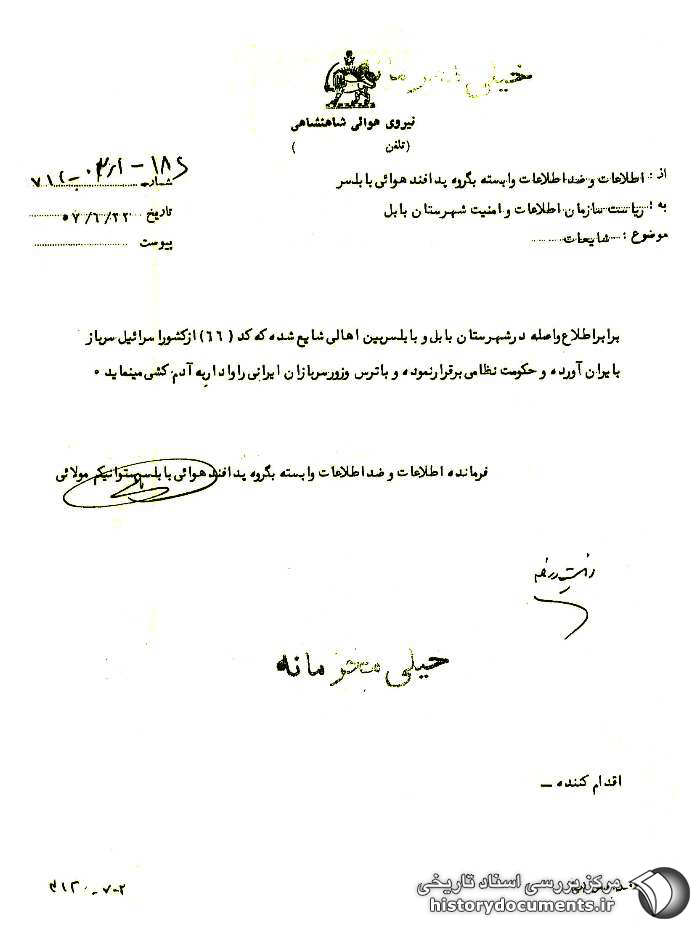 خیلی محرمانه
نیروی هوائی شاهنشاهی
(تلفن )
از : اطلاعات و ضد اطلاعات وابسته بگروه پدافند هوائی بابلسر
به : ریاست سازمان اطلاعات و امنیت شهرستان بابل
موضوع : شایعات
شماره
تاریخ ۵۷/۶/۲۲
پیوست
برابر اطلاع واصله در شهرستان بابل و بابلسر بین اهالی شایع شده که کد (۶۶) از کشور اسرائیل سرباز
بایران آورده و حکومت نظامی برقرار نموده و با ترس و زور سربازان ایرانی را وادار به آدم کشی مینماید ۰
فرمانده اطلاعات و ضد اطلاعات وابسته بگروه پدافند هوائی بابلسر ستوانیکم مولائی
خیلی محرمانه
اقدام کننده ــ
مرکز بررسی اسناد تاریخی
historydocuments.ir